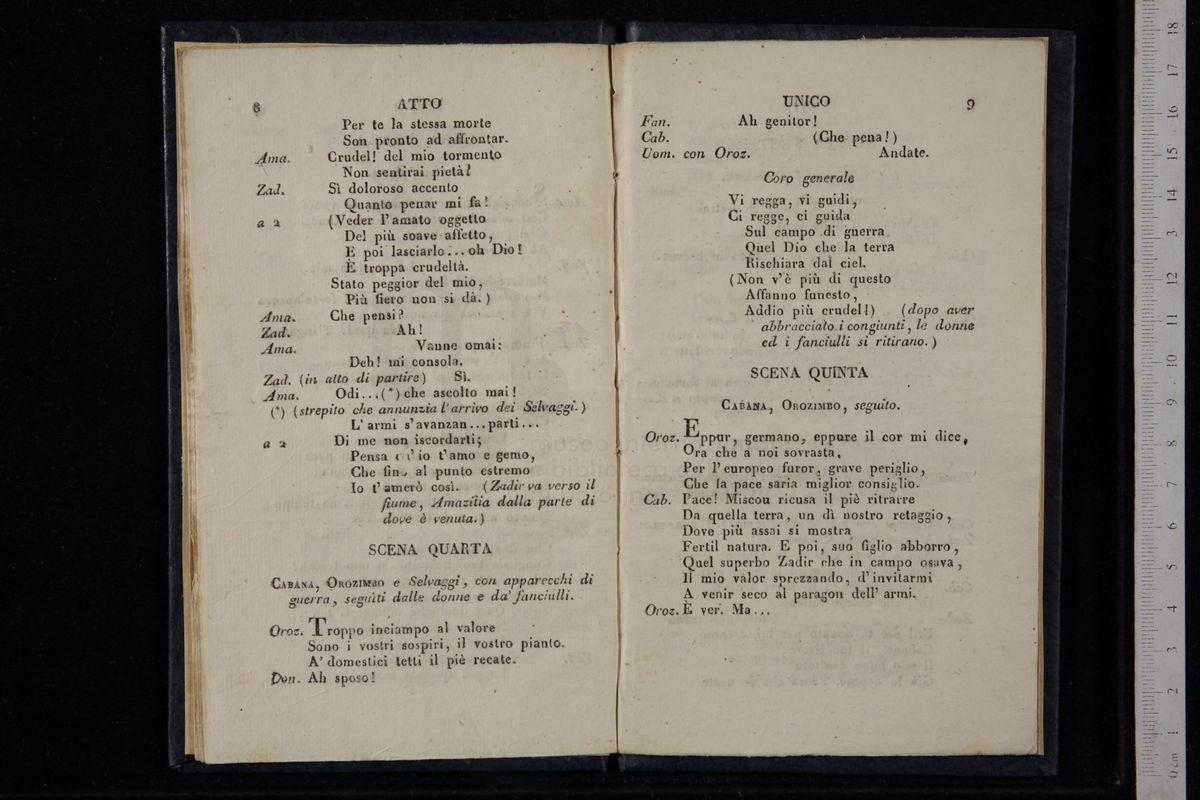 8 ATTO
Per te la stessa morte
Son pronto ad affrontar.
Ama. Crudel! del mio tormento
Non sentirai pietà?
Zad. Sì doloroso accento
Quanto penar mi fa!
a 2 (Veder l'amato oggetto
Del più soave affetto,
E poi lasciarlo... oh Dio!
È troppa crudeltà.
Stato peggior del mio,
Più fiero non si dà.)
Ama. Che pensi?
Zad. Ah!
Ama. Vanne omai:
Deh! mi consola.
Zad. (in atto di partire) Sì.
Ama. Odi...(*) che ascolto mai!
(*) (strepito che annunzia l'arrivo dei Selvaggi.)
L'armi s'avanzan...parti...
a 2 Di me non iscordarti;
Pensa ch'io t'amo e gemo,
Che fino al punto estremo
Io t'amerò così. (Zadir va verso il
fiume, Amazilia dalla parte di
dove è venuta.)
SCENA QUARTA
CABANA, OROZIMBO e Selvaggi, con apparecchi di
guerra, seguiti dalle donne e da' fanciulli.
Oroz. Troppo inciampo al valore
Sono i vostri sospiri, il vostro pianto.
A' domestici tetti il piè recate.
Don. Ah sposo!
UNICO 9
Fan. Ah genitor!
Cab. (Che pena!)
Uom. con Oroz. Andate.
Coro generale
Vi regga, vi guidi,
Ci regge, ci guida
Sul campo di guerra
Quel Dio che la terra
Rischiara dal ciel.
(Non v'è più di questo
Affanno funesto,
Addio più crudel!) (dopo aver
abbracciato i congiunti, le donne
ed i fanciulli si ritirano.)
SCENA QUINTA
CABANA, OROZIMBO, seguito.
Oroz. Eppur, germano, eppure il cor mi dice,
Ora che a noi sovrasta,
Per l'europeo furor, grave periglio,
Che la pace saria miglior consiglio.
Cab. Pace! Miscou ricusa il piè ritrarre
Da quella terra, un dì nostro retaggio,
Dove più assai si mostra
Fertil natura. E poi, suo figlio abborro,
Quel superbo Zadir che in campo osava,
Il mio valor sprezzando, d'invitarmi
A venir seco al paragon dell'armi.
Oroz. È ver. Ma...
0 cm 1 2 3 4 5 6 7 8 9 10 11 12 13 14 15 16 17 18